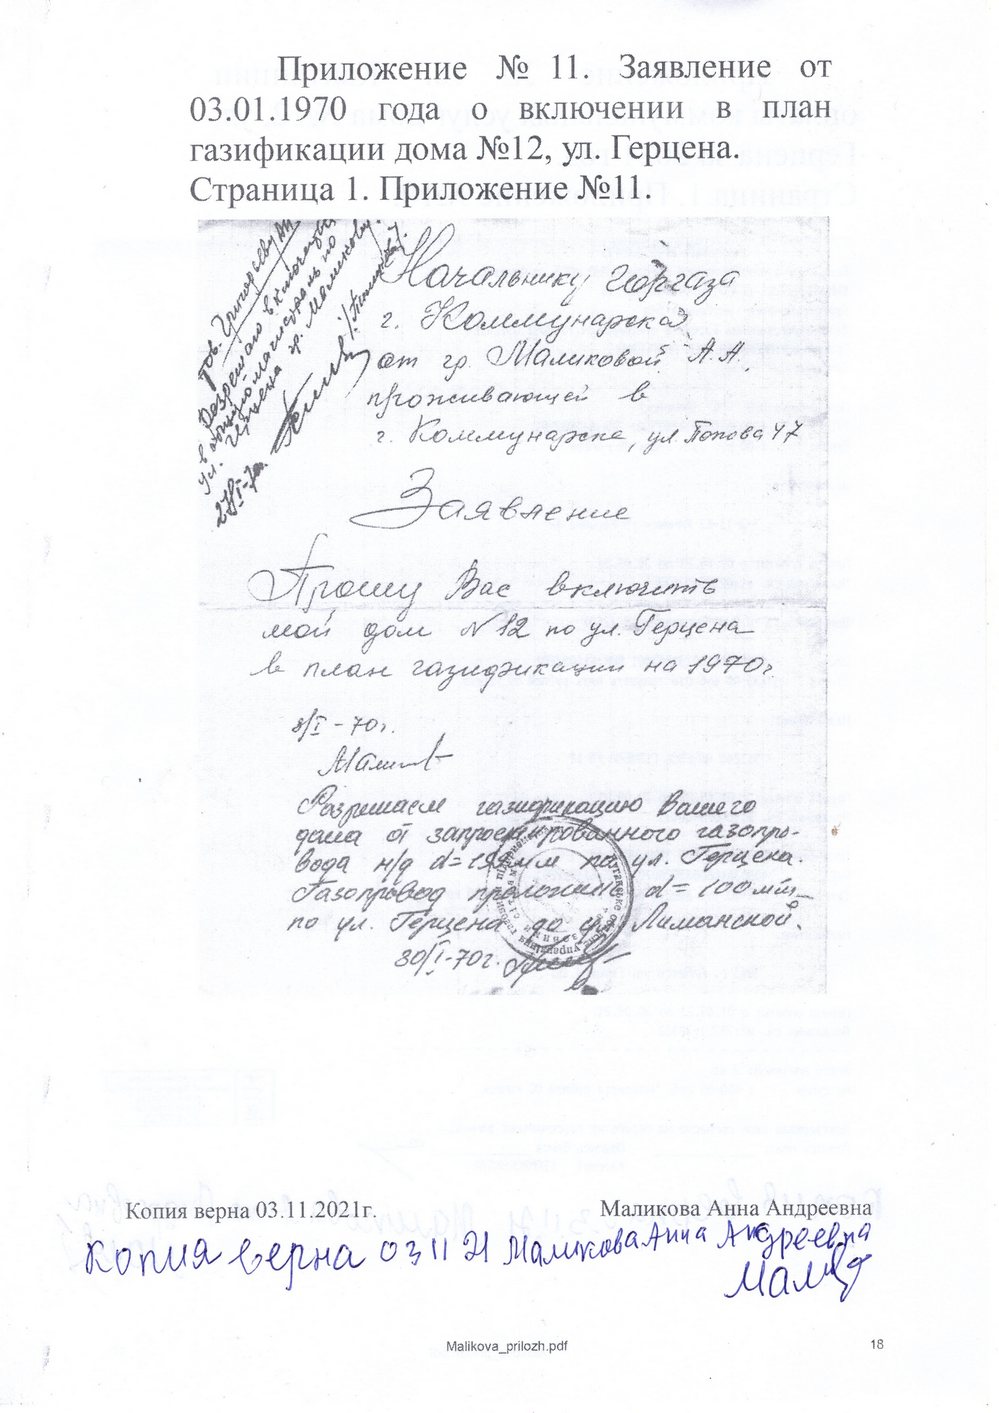 Приложение № 11. Заявление от
03.01.1970 года о включении в план
газификации дома №12, ул. Герцена.
Страница 1. Приложение №11.
тов. Григорьеву АИ
Разрешаю включение
в общую магистраль по
ул. Герцена гр. Маликову.
27/I-70г.
Начальнику горгаза
г. Коммунарска
от гр. Маликовой А.А.
проживающей в
г. Коммунарске, ул Попова 47
Заявление
Прошу Вас включить
мой дом №12 по ул. Герцена
в план газификации на 1970г.
8/I-70г.
Разрешаем газификацию Вашего
дома от запроектированного газопро-
вода н/д d= по ул. Герцена.
Газопровод проложить d=100мм
по ул. Герцена до ул. Лиманской.
30/I-70г.
Копия верна 03.11.2021г.
Маликова Анна Андреевна
Копия верна 03 11 21 Маликова Анна Андреевна
Malikova_prilozh.pdf
18